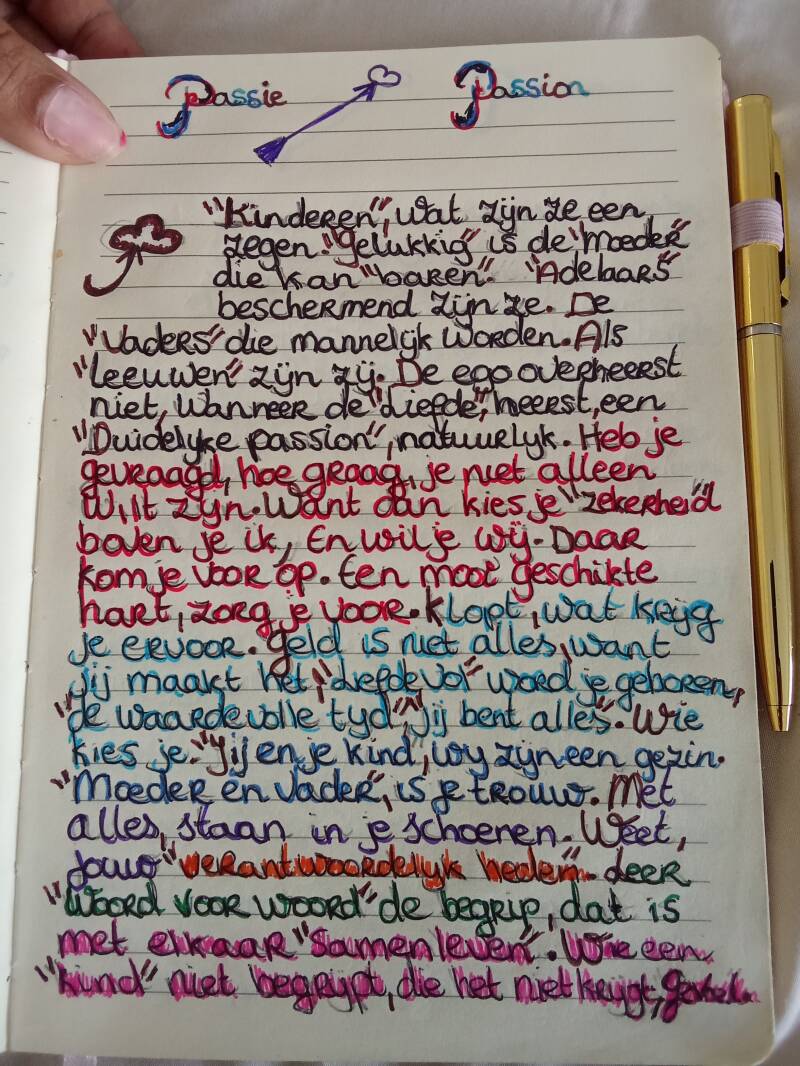 Passie Passion
"Kinderen", wat zijn ze een
zegen. "Gelukkig" is de "Moeder"
die kan "baren". "Adelaars"
beschermend zijn ze. De
"Vaders" die mannelijk worden. Als
"Leeuwen" zijn zij. De ego overheerst
niet, wanneer de "Liefde", heerst, een
"Duidelijke passion", natuurlijk. Heb je
gevraagd, hoe graag, je niet alleen
wilt zijn. Want dan kies je "zekerheid"
boven je ik, En wil je wij. Daar
kom je voor op. Een mooi geschikte
hart, zorg je voor. Klopt, wat krijg
je ervoor. Geld is niet alles, want
jij maakt het, "Liefdevol" word je geboren,
"de waardevolle tyd", "jij bent alles". Wie
kies je. "Jij en je kind", wy zijn een gezin.
"Moeder en Vader", is je trouw. Met
alles, staan in je schoenen. Weet,
jouw "verantwoordelijk heden". Leer
"Woord voor woord" de begrip, dat is
met elkaar "Samen leven". Wie een
"kind" niet begrijpt, die het niet krijgt,